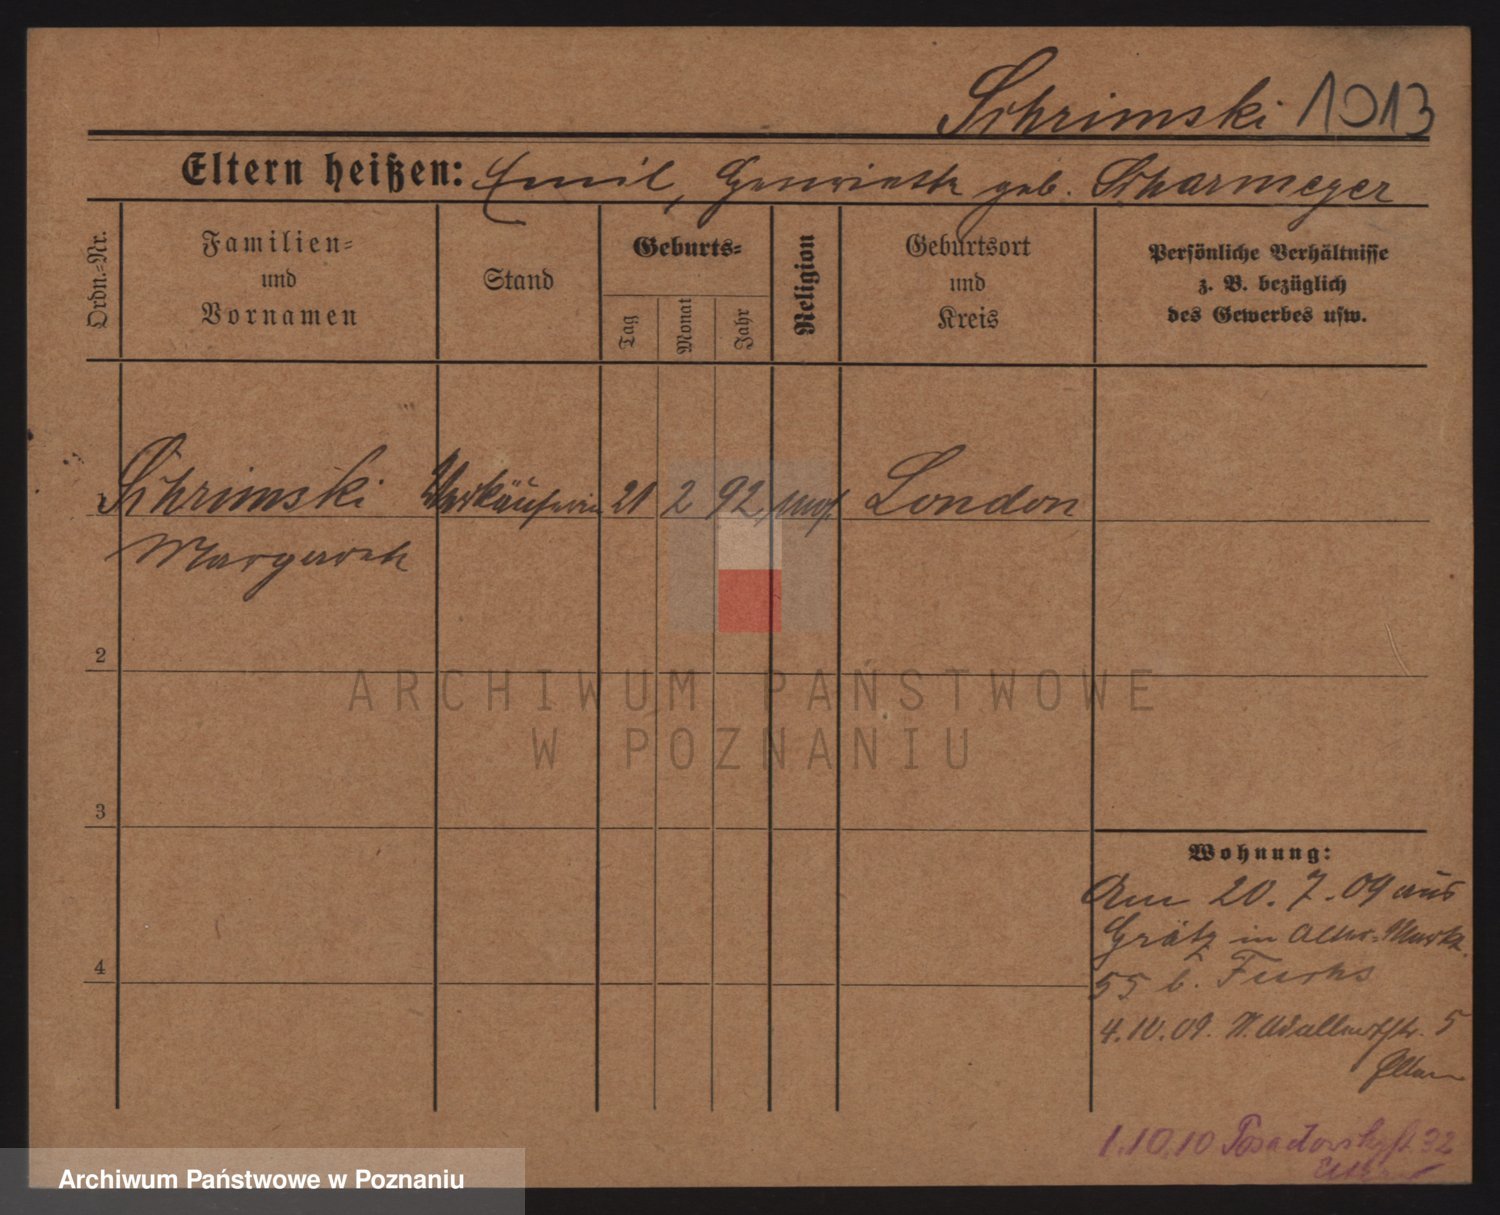 Schrimski 1013
Eltern heißen: Emil, Henriette geb. Scharmeyer
Ordn.-Nr.
Familien-
und
Vornamen
Stand
Geburts-
Tag
Monat
Jahr
Religion
Geburtsort
und
Kreis
Persönliche Verhältnisse
z. B. bezüglich
des Gewerbes usw.
1 Schrimski Verkäuferin 21 2 92 mos. London
Margarete
2
ARCHIWUM PAŃSTWOWE
W POZNANIU
3
Wohnung:
Am 20.7.09 aus
Grätz in Alter Markt
55 b. Fuchs
4
4.10.09. 5
Eltern
1.10.10 Posadowskystr. 32
Archiwum Państwowe w Poznaniu